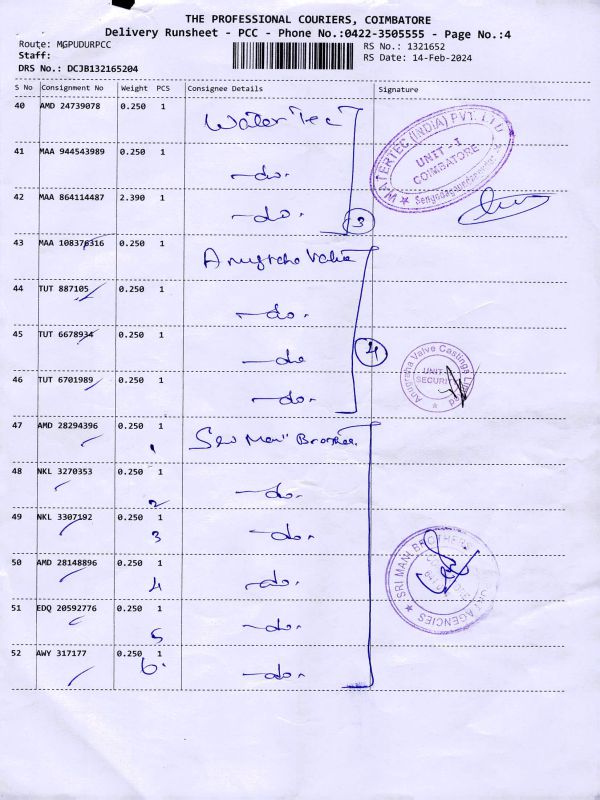 THE PROFESSIONAL COURIERS, COIMBATORE
Delivery Runsheet - PCC - Phone No.:0422-3505555 - Page No.:4
Route: MGPUDURPCC
RS No.: 1321652
Staff:
RS Date: 14-Feb-2024
DRS No.: DCJB132165204
S No Consignment No Weight PCS Consignee Details Signature
40 AMD 24739078 0.250 1 Water Tec
WATERTEC (INDIA) PVT. LTD
UNIT - I
COIMBATORE
41 MAA 944543989 0.250 1 -do.
42 MAA 864114487 2.390 1 -do.
3
43 MAA 108376316 0.250 1 Anugraha Valve
44 TUT 887105 0.250 1 -do.
45 TUT 6678934 0.250 1 -do
4
Anugraha Valve Castings
UNIT
SECURITY
46 TUT 6701989 0.250 1 -do.
47 AMD 28294396 0.250 1 Sri Mani Brothers
1
48 NKL 3270353 0.250 1 -do.
2
49 NKL 3307192 0.250 1 -do.
3
50 AMD 28148896 0.250 1 -do.
4
SRI MANI BROTHERS
AGENCIES
51 EDQ 20592776 0.250 1 -do.
5
52 AWY 317177 0.250 1 -do.
6.